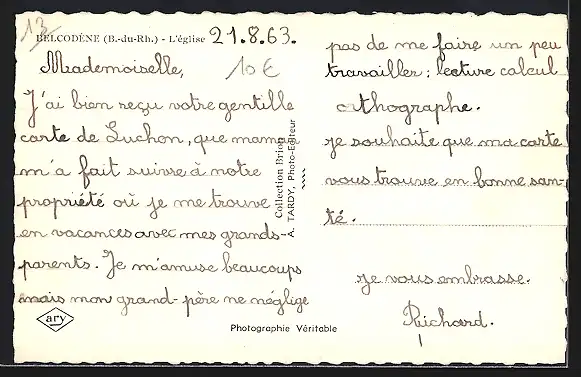 13
BELCODÈNE (B.-du-Rh.) - L'église 21.8.63.
Mademoiselle,
10 €
J'ai bien reçu votre gentille
carte de Luchon, que maman
m'a fait suivre à notre
propriété où je me trouve
en vacances avec mes grands-
parents. Je m'amuse beaucoups
mais mon grand-père ne néglige
ary
Collection Brion
A. TARDY, Photo-Editeur
Photographie Véritable
pas de me faire un peu
travailler: lecture calcul
orthographe.
je souhaite que ma carte
vous trouve en bonne san-
té.
je vous embrasse.
Richard.